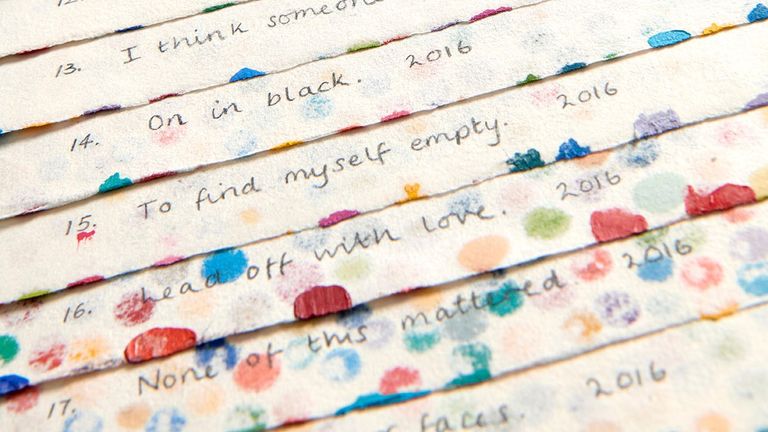 13. I think someone
14. On in black. 2016
15. To find myself empty. 2016
16. Lead off with love. 2016
17. None of this mattered. 2016
faces. 2016